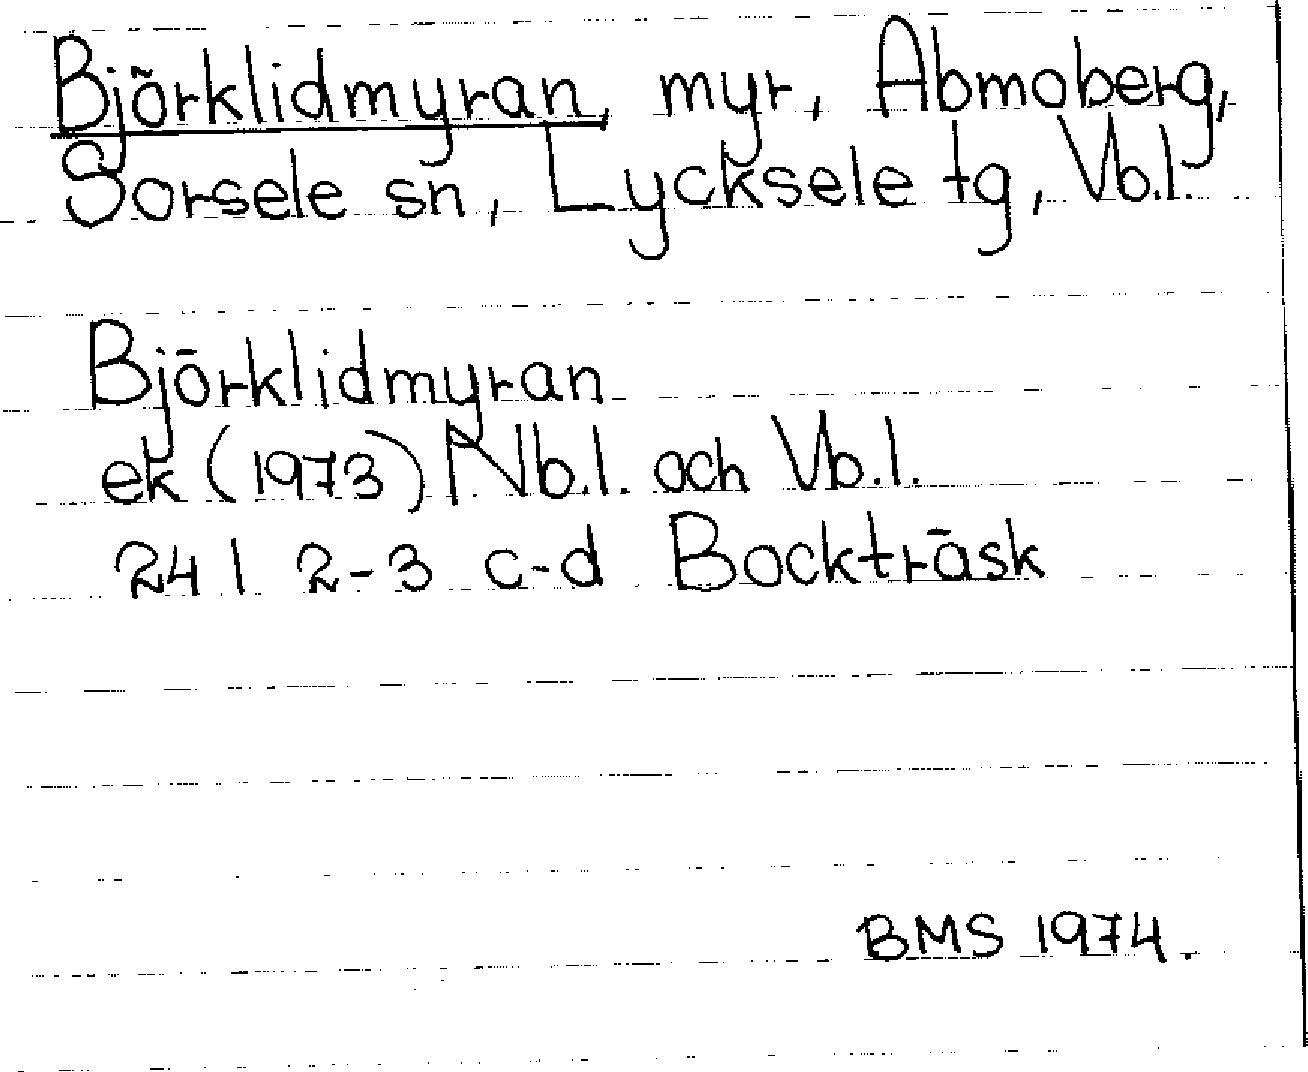 Björklidmyran, myr, Abmoberg,
Sorsele sn, Lycksele tg, Vb.l.
Björklidmyran
ek (1973) Nb.l. och Vb.l.
24 I 2-3 c-d Bockträsk
BMS 1974.